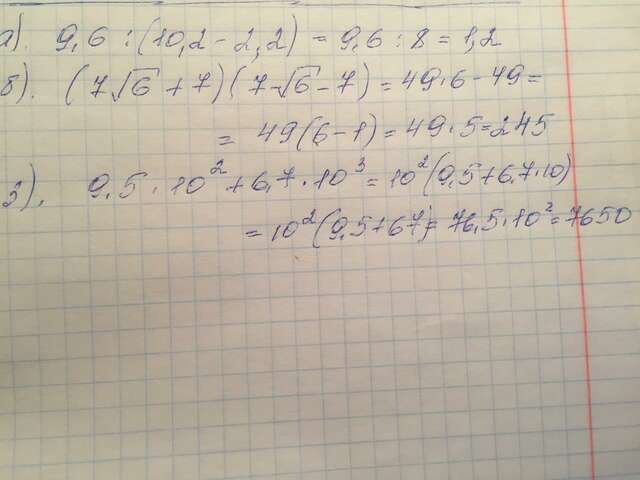 а). 9,6 : (10,2 - 2,2) = 9,6 : 8 = 1,2
б). (7√6 + 7)(7-√6 - 7) = 49·6 - 49 =
= 49(6-1) = 49·5 = 245
3). 9,5·10² + 6,7·10³ = 10²(9,5+6,7·10)
= 10²(9,5+67) = 76,5·10² = 7650